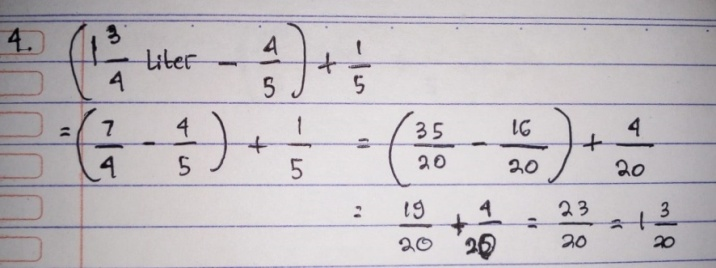 4. (1 3/4 Liter - 4/5) + 1/5
= (7/4 - 4/5) + 1/5 = (35/20 - 16/20) + 4/20
= 19/20 + 4/20 = 23/20 = 1 3/20